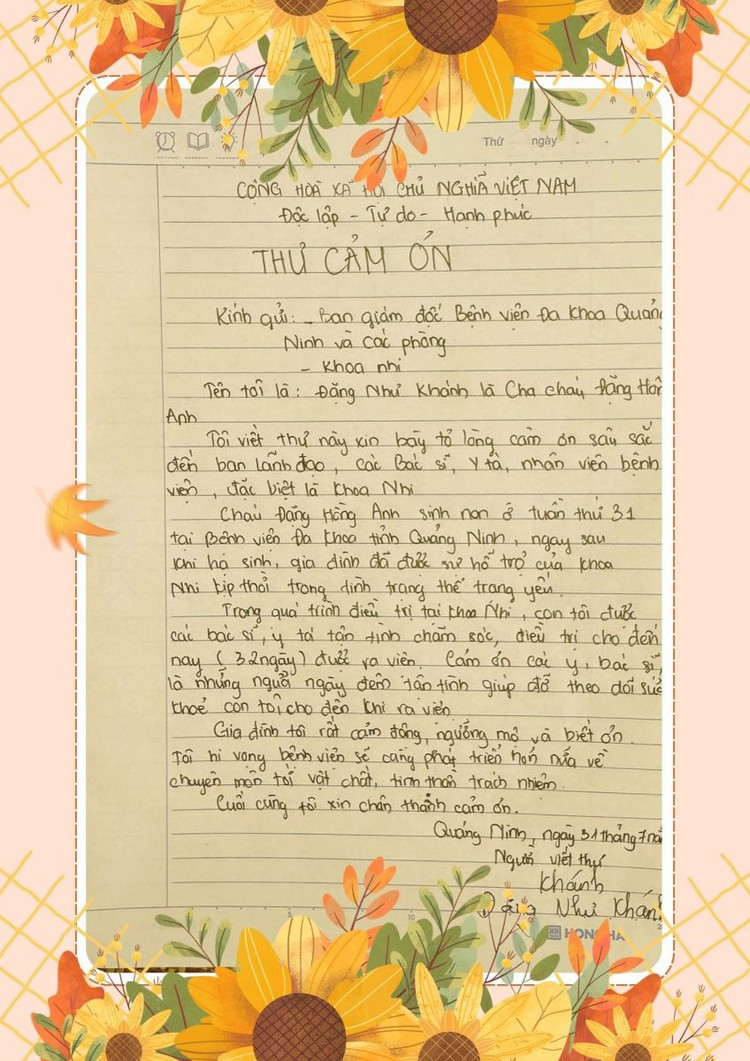 Thứ ngày
CỘNG HOÀ XÃ HỘI CHỦ NGHĨA VIỆT NAM
Độc lập - Tự do - Hạnh phúc
THƯ CẢM ƠN
Kính gửi: - Ban giám đốc Bệnh viện Đa khoa Quảng
Ninh và các phòng
- Khoa nhi
Tên tôi là : Đặng Như Khánh là Cha cháu Đặng Hồn
Anh
Tôi viết thư này xin bày tỏ lòng cảm ơn sâu sắc
đến ban lãnh đạo, các Bác sĩ, Y tá, nhân viên bệnh
viện, đặc biệt là khoa Nhi
Cháu Đặng Hồng Anh sinh non ở tuần thứ 31
tại Bệnh viện Đa khoa tỉnh Quảng Ninh, ngay sau
khi hạ sinh, gia đình đã được sự hỗ trợ của khoa
Nhi kịp thời trong tình trạng thể trạng yếu.
Trong quá trình điều trị tại khoa Nhi, con tôi được
các bác sĩ, y tá tận tình chăm sóc, điều trị cho đến
nay (32 ngày) được ra viện. Cảm ơn các y, bác sĩ,
là những người ngày đêm tận tình giúp đỡ theo dõi sức
khoẻ con tôi cho đến khi ra viện
Gia đình tôi rất cảm động, ngưỡng mộ và biết ơn.
Tôi hi vọng bệnh viện sẽ càng phát triển hơn nữa về
chuyên môn tốt vật chất, tinh thần trách nhiệm.
Cuối cùng tôi xin chân thành cảm ơn.
Quảng Ninh, ngày 31 tháng 7 nă
Người viết thư
Khánh
Đặng Như Khánh
HONG HA